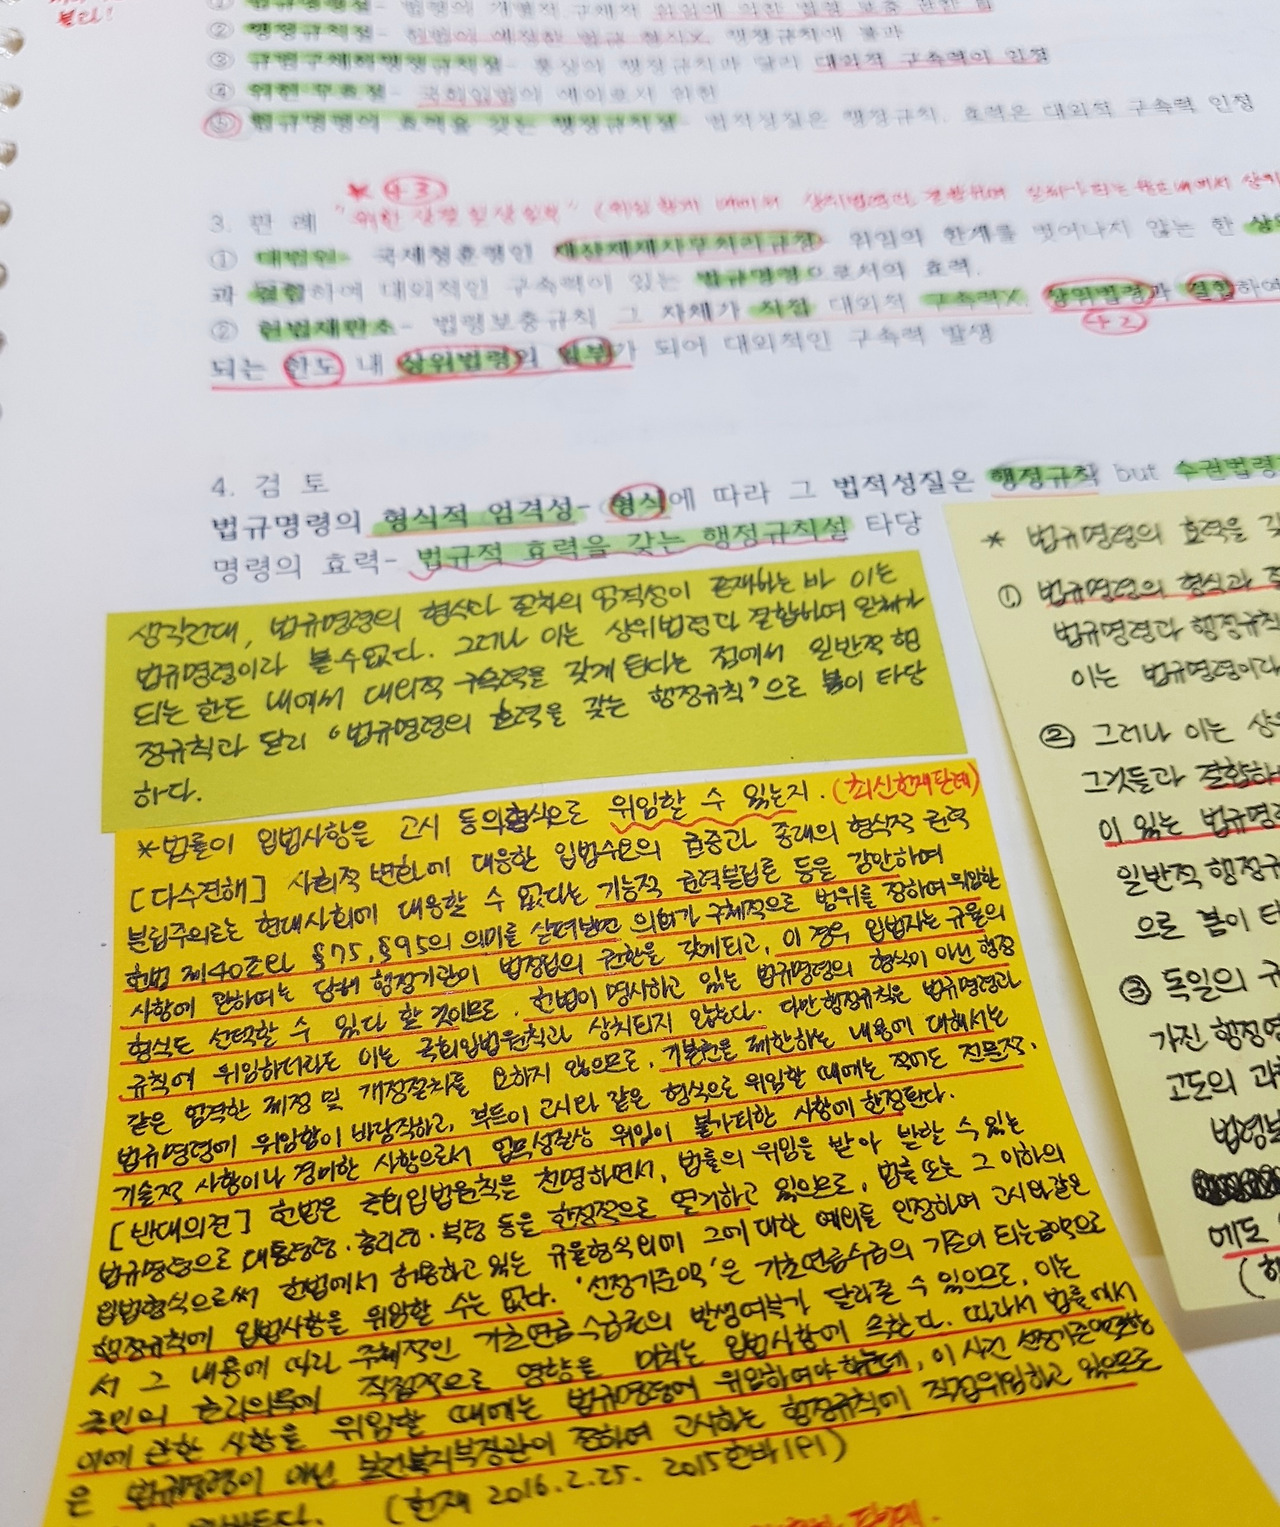 분리!
② 행정규칙설- 헌법이 예정한 법규 형식X, 행정규칙에 불과
③ 규범구체화행정규칙설- 통상의 행정규칙과 달리 대외적 구속력이 인정
④ 위헌 무효설- 국회입법의 예외로서 위헌
⑤ 법규명령의 효력을 갖는 행정규칙설- 법적성질은 행정규칙, 효력은 대외적 구속력 인정
* 43
3. 판 례
① 대법원- 국세청훈령인 재산제세사무처리규정- 위임의 한계를 벗어나지 않는 한
과 결합하여 대외적인 구속력이 있는 법규명령으로서의 효력.
② 헌법재판소- 법령보충규칙 그 자체가 직접 대외적 구속력X, 상위법령과 결합하여
42
되는 한도 내 상위법령의 일부가 되어 대외적인 구속력 발생
4. 검 토
법규명령의 형식적 엄격성- 형식에 따라 그 법적성질은 행정규칙 but 수권법령
명령의 효력- 법규적 효력을 갖는 행정규칙설 타당
생각건대, 법규명령의 형식과 절차의 엄격성이 존재하는 바 이는
법규명령이라 볼 수 없다. 그러나 이는 상위법령과 결합하여 일체가
되는 한도 내에서 대외적 구속력을 갖게 된다는 점에서 일반적 행
정규칙과 달리 '법규명령의 효력을 갖는 행정규칙'으로 봄이 타당
하다.
* 법률이 입법사항을 고시 등의 형식으로 위임할 수 있는지. (최신헌재판례)
[다수견해] 사회적 변화에 대응한 입법수요의 급증과 종래의 형식적 권력
분립주의로는 현대사회에 대응할 수 없다는 기능적 권력분립론 등을 감안하여
헌법 제40조와 §75, §95의 의미를 살펴보면 의회가 구체적으로 범위를 정하여 위임한
사항에 관하여는 당해 행정기관이 법정립의 권한을 갖게되고, 이 경우 입법자는 규율의
형식도 선택할 수 있다 할 것이므로, 헌법이 명시하고 있는 법규명령의 형식이 아닌 행정
규칙에 위임하더라도 이는 국회입법원칙과 상치되지 않는다. 다만 행정규칙은 법규명령과
같은 엄격한 제정 및 개정절차를 요하지 않으므로, 기본권을 제한하는 내용에 대해서는
법규명령에 위임함이 바람직하고, 부득이 고시와 같은 형식으로 위임할 때에는 적어도 전문적.
기술적 사항이나 경미한 사항으로서 업무성질상 위임이 불가피한 사항에 한정된다.
[반대의견] 헌법은 국회입법원칙을 천명하면서, 법률의 위임을 받아 발할 수 있는
법규명령으로 대통령령·총리령·부령 등을 한정적으로 열거하고 있으므로, 법률 또는 그 이하의
입법형식으로써 헌법에서 허용하고 있는 규율형식 외에 그에 대한 예외를 인정하여 고시와 같은
행정규칙에 입법사항을 위임할 수는 없다. '선정기준액'은 기초연금수급의 기준이 되는 금액으로
서 그 내용에 따라 구체적인 기초연금수급권의 발생여부가 달라질 수 있으므로, 이는
국민의 권리의무에 직접적으로 영향을 미치는 입법사항에 속한다. 따라서 법률에서
이에 관한 사항을 위임할 때에는 법규명령에 위임하여야 하는데, 이 사건 선정기준액조항
은 법규명령이 아닌 보건복지부장관이 정하여 고시하는 행정규칙에 직접위임하고 있으므로
(헌재 2016.2.25. 2015헌바191)
* 법규명령의 효력을 갖
① 법규명령의 형식과 절
법규명령과 행정규칙
이는 법규명령이라
② 그러나 이는 상
그것들과 결합하
이 있는 법규명령
일반적 행정규
으로 봄이 타
③ 독일의 규
가진 행정
고도의 과
법령보
에도